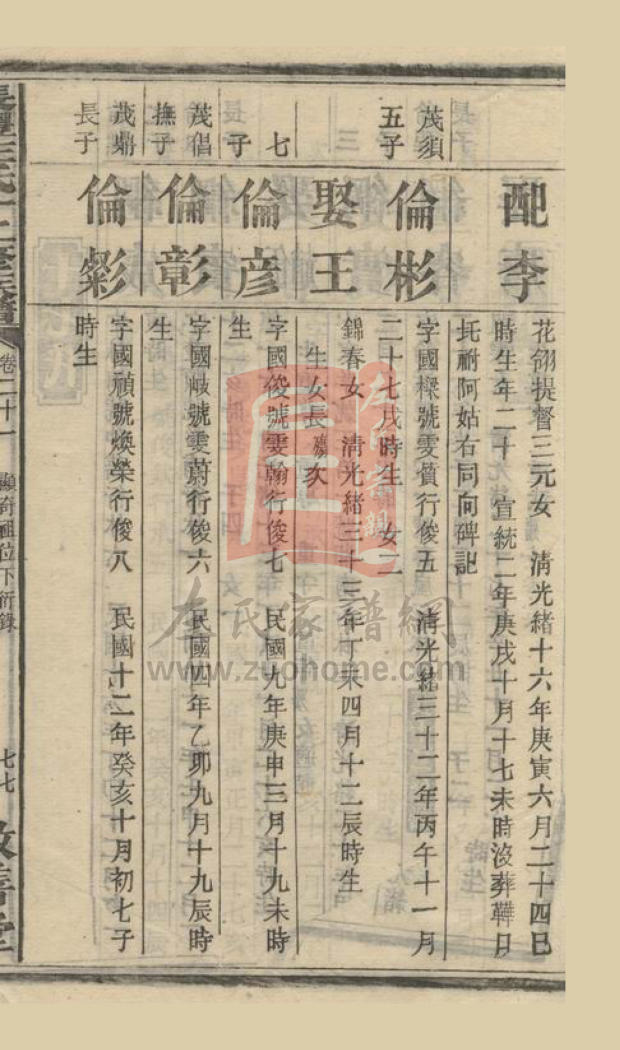 配李
花翎提督三元女　清光緒十六年庚寅六月二十四巳
時生年二十　宣統二年庚戌十月十七未時沒葬鞾月
圫祔阿姑右同向碑記
茂須
五子
倫彬
字國樑號雯質行俊五　清光緒三十二年丙午十一月
二十七戌時生　女二
娶王
錦春女　清光緒三十三年丁未四月十二辰時生
生女長　次
七
子
倫彥
字國俊號雯翰行俊七　民國九年庚申三月十九未時
生
茂倡
撫子
倫彰
字國峸號雯蔚行俊六　民國四年乙卯九月十九辰時
生
茂鼎
長子
倫彩
字國禎號煥榮行俊八　民國十二年癸亥十月初七子
時生
卷二十一　顯奇祖位下衍錄
七七
敬善堂
左氏家譜網
www.zuohome.com